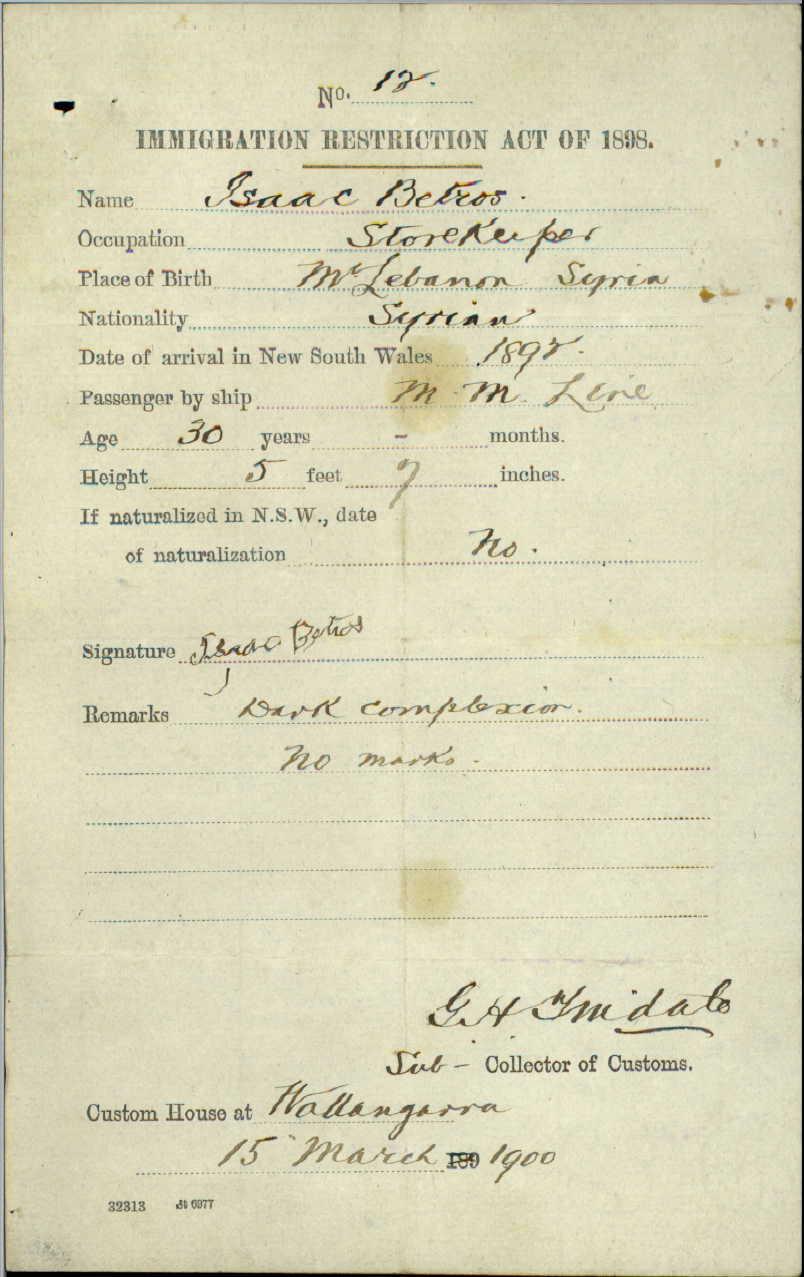 No. 12.
IMMIGRATION RESTRICTION ACT OF 1898.
Name Isaac Betros.
Occupation Storekeeper
Place of Birth Mt Lebanon Syria
Nationality Syrian
Date of arrival in New South Wales 1892.
Passenger by ship M. M. Line
Age 30 years - months.
Height 5 feet 7 inches.
If naturalized in N.S.W., date
of naturalization No.
Signature Isaac Betros
Remarks Dark complexion.
No marks.
G H
Sub - Collector of Customs.
Custom House at Wallangarra
15 March 189 1900
32313 St 6977